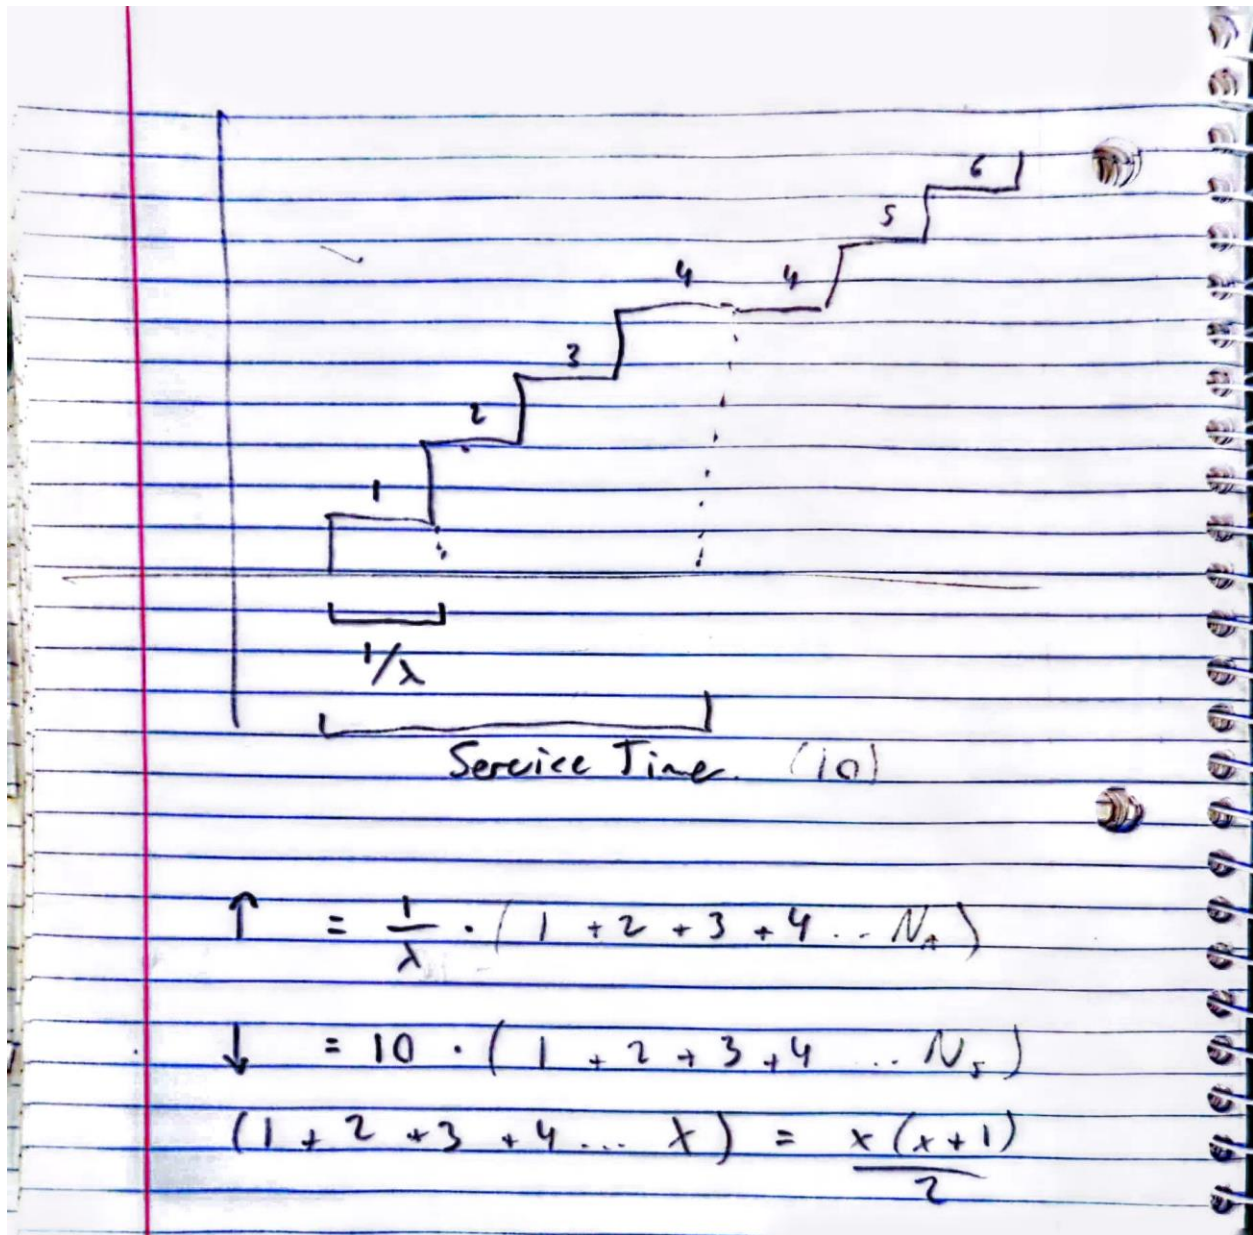 6
5
4 4
3
2
1
1/λ
Service Time (10)
↑ = 1/λ · (1 + 2 + 3 + 4 .. N_A)
↓ = 10 · (1 + 2 + 3 + 4 ... N_s)
(1 + 2 + 3 + 4 ... x) = x(x+1)/2